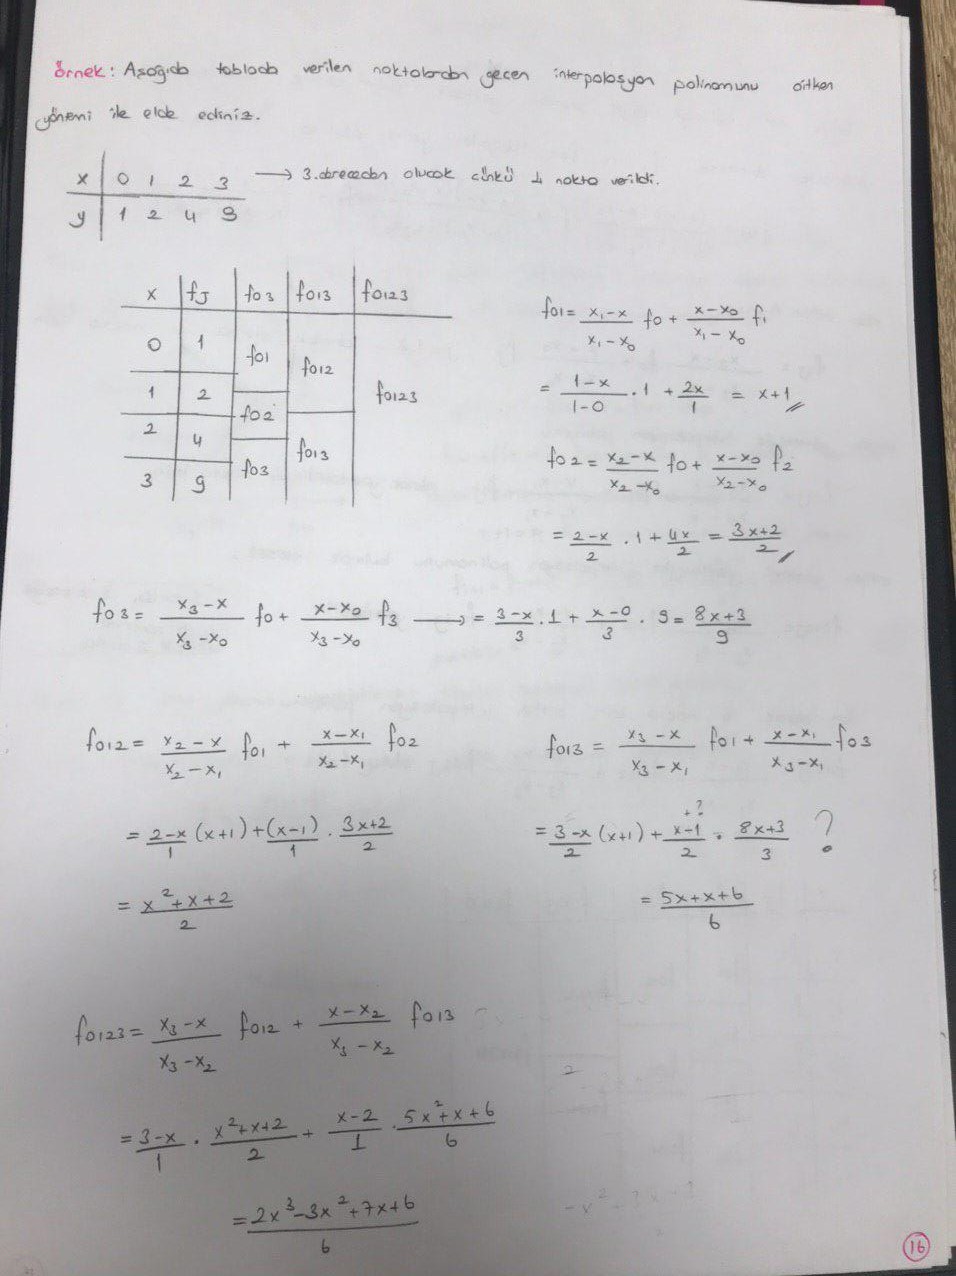 örnek: Aşağıda tabloda verilen noktalardan geçen interpolasyon polinomunu aitken
yönemi ile elde ediniz.
x | 0 1 2 3 → 3.dereceden olucak çünkü 4 nokta verildi.
y | 1 2 4 9
x | fJ | f03 | f013 | f0123
0 | 1
f01
f012
1 | 2
f02
f0123
2 | 4
f013
3 | 9
f03
f01 = (x₁-x)/(x₁-x₀) f0 + (x-x₀)/(x₁-x₀) f₁
= (1-x)/(1-0) . 1 + 2x/1 = x+1 //
f02 = (x₂-x)/(x₂-x₀) f0 + (x-x₀)/(x₂-x₀) f₂
= (2-x)/2 . 1 + 4x/2 = (3x+2)/2 //
f03 = (x₃-x)/(x₃-x₀) f0 + (x-x₀)/(x₃-x₀) f₃ → = (3-x)/3 . 1 + (x-0)/3 . 9 = (8x+3)/9
f012 = (x₂-x)/(x₂-x₁) f01 + (x-x₁)/(x₂-x₁) f02
= (2-x)/1 (x+1) + (x-1)/1 . (3x+2)/2
= (x²+x+2)/2
f013 = (x₃-x)/(x₃-x₁) f01 + (x-x₁)/(x₃-x₁) f03
+?
= (3-x)/2 (x+1) + (x-1)/2 . (8x+3)/3 ?
= (5x+x+6)/6
f0123 = (x₃-x)/(x₃-x₂) f012 + (x-x₂)/(x₃-x₂) f013
= (3-x)/1 . (x²+x+2)/2 + (x-2)/1 . (5x²+x+6)/6
= (2x³-3x²+7x+6)/6
16